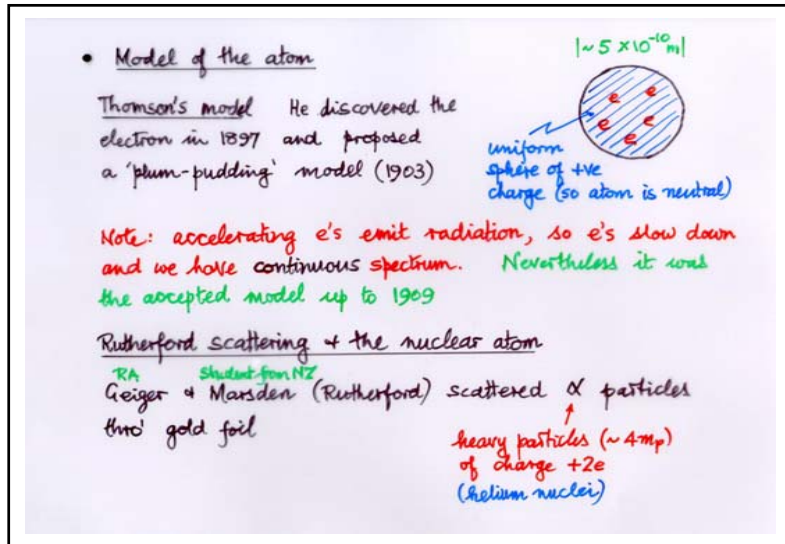 • Model of the atom
|~5 x 10⁻¹⁰m|
Thomson's model He discovered the
electron in 1897 and proposed
a 'plum-pudding' model (1903)
e e
e e
e
uniform
sphere of +ve
charge (so atom is neutral)
Note: accelerating e's emit radiation, so e's slow down
and we have continuous spectrum. Nevertheless it was
the accepted model up to 1909
Rutherford scattering & the nuclear atom
RA Student from NZ
Geiger & Marsden (Rutherford) scattered α particles
thro' gold foil
heavy particles (~4mₚ)
of charge +2e
(helium nuclei)